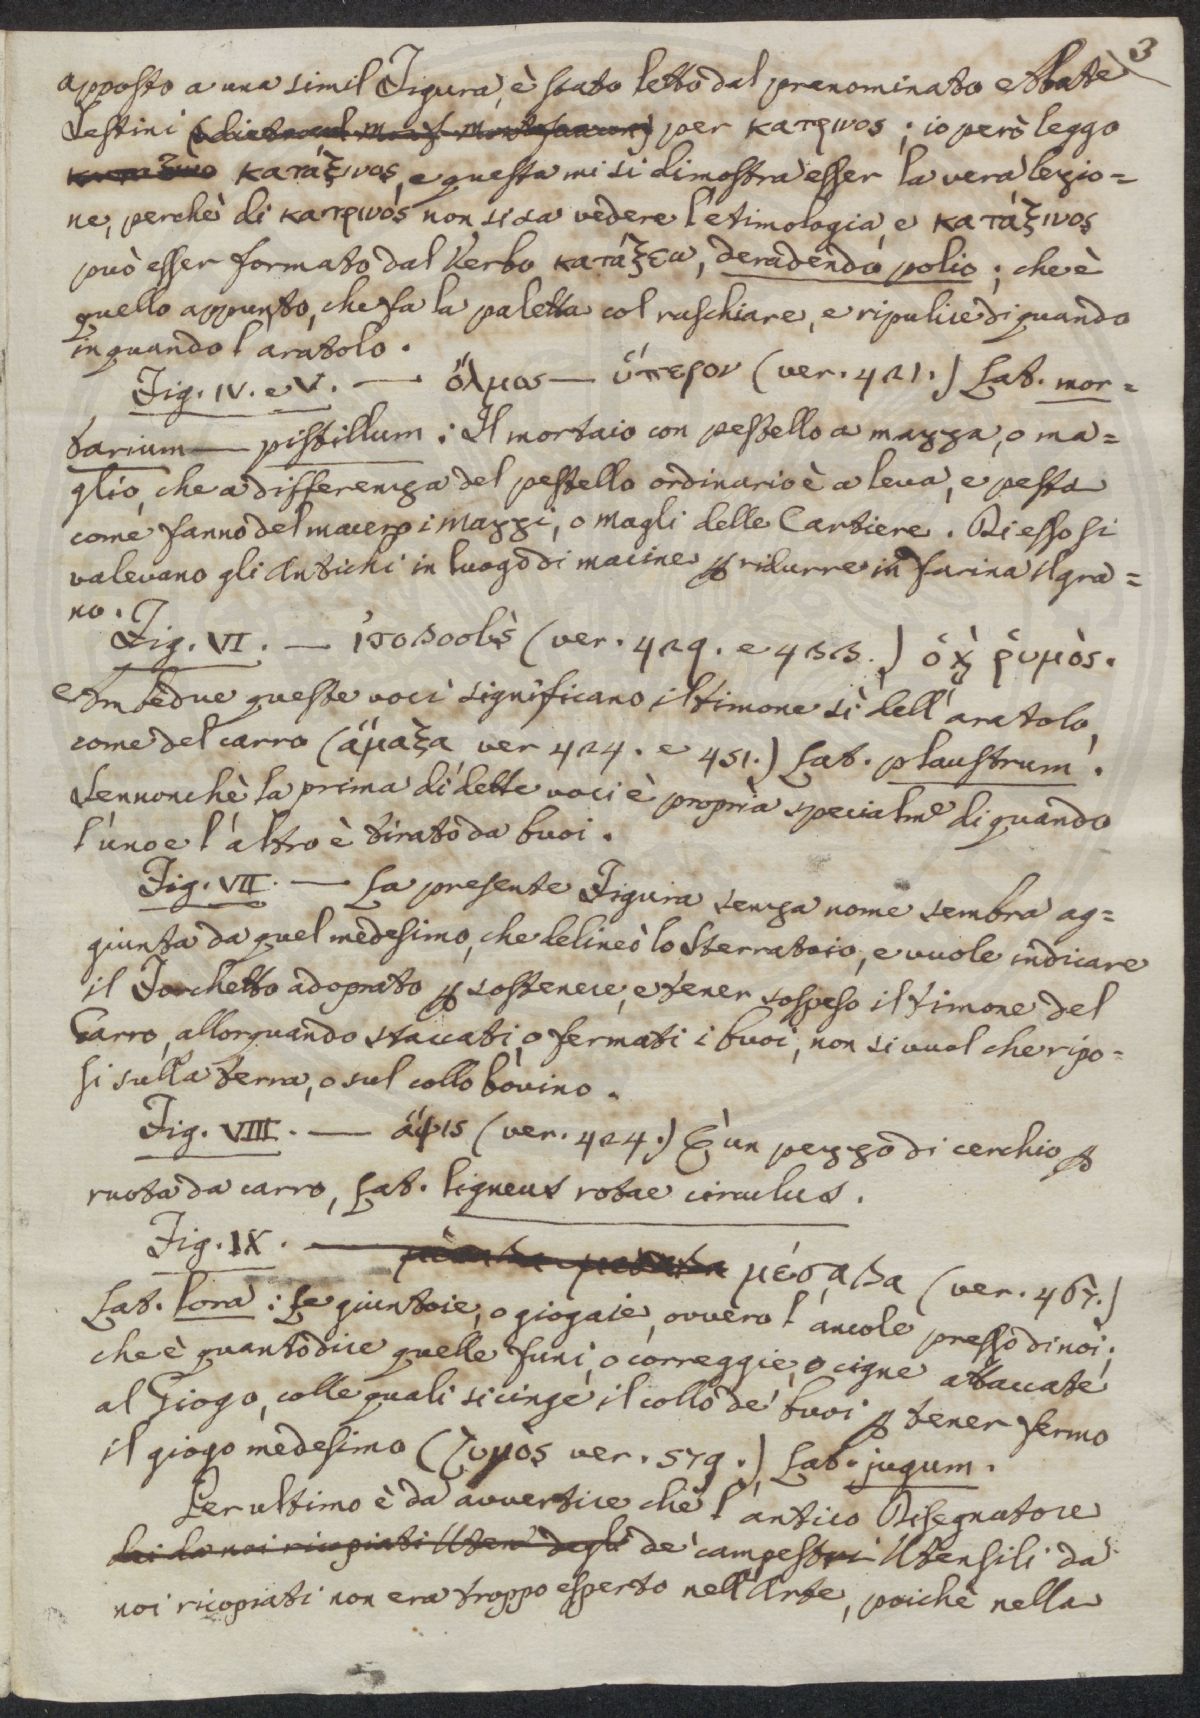 3
apposto a una simil Figura, è stato letto dal prenominato Abate
Sestini per κατρινος; io però leggo
κατάξινος, e questa mi si dimostra esser la vera lezio=
ne, perchè di κατρινός non si sa vedere l'etimologia, e κατάξινος
può esser formato dal Verbo κατάξεω, deradendo polio; che è
quello appunto, che fa la paletta col raschiare, e ripulire di quando
in quando l'aratolo.
Fig. IV. e V. — ὅλμος — ὕπερον (ver. 421.) Lat. mor=
tarium — pistillum: Il mortaio con pestello a mazza, o ma=
glio, che a differenza del pestello ordinario è a leva, e pesta
come fanno del macero i mazzi, o magli delle Cartiere. Di esso si
valevano gli Antichi in luogo di macine ꝑ ridurre in farina il gra=
no.
Fig. VI. — ἱσοβοεὺς (ver. 429. e 433.) ὁ ϗ ῥυμὸς.
Ambedue queste voci significano il timone sì dell'aratolo,
come del carro (ἅμαξα ver 424. e 451.) Lat. plaustrum.
Sennonchè la prima di dette voci è propria specialmᵉ di quando
l'uno e l'altro è tirato da buoi.
Fig. VII. — La presente Figura senza nome sembra ag=
giunta da quel medesimo, che delineò lo Sterratoio, e vuole indicare
il Forchetto adoprato ꝑ sostenere, e tener sospeso il timone del
Carro, allorquando staccati, o fermati i buoi, non si vuol che ripo=
si sulla terra, o sul collo bovino.
Fig. VIII. — ἅψις (ver. 424.) È un pezzo di cerchio ꝑ
ruota da carro, Lat. ligneus rotae circulus.
Fig. IX. — μέσαβα (ver. 467.)
Lat. lora: Le giuntoie, o giogaie, ovvero l'ancole presso di noi;
che è quanto dire quelle funi, o correggie, o cigne attaccate
al Giogo, colle quali si cinge il collo de' buoi ꝑ tener fermo
il giogo medesimo (ζυμὸς ver. 579.) Lat. jugum.
Per ultimo è da avvertire che l'antico Disegnatore
de' campestri Utensili da
noi ricopiati non era troppo esperto nell'Arte, poichè nella